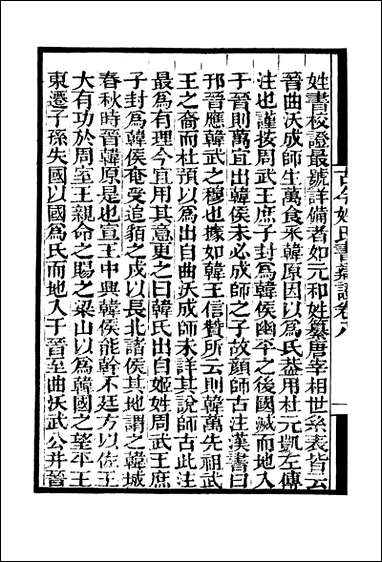 姓書校證最號詳備者如元和姓纂唐宰相世系表皆云
晉曲沃成師生萬食采韓原因以為氏葢用杜元凱左傳
注也謹按周武王庶子封為韓侯幽平之後國滅而地入
于晉則萬宜出韓侯未必成師之子故顏師古注漢書曰
邘晉應韓武之穆也據如韓王信贊所云則韓萬先祖武
王之裔而杜預以為出自曲沃成師未詳其說師古此注
最為有理今宜用其意更之曰韓氏出自姬姓周武王庶
子封為韓侯奄受追貊之戍以長北諸侯其地謂之韓城
春秋時晉韓原是也宣王中興韓侯能榦不廷方以佐王
大有功於周室王親命之賜之梁山以為韓國之望平王
東遷子孫失國以國為氏而地入于晉至曲沃武公并晉
古今姓氏書辯證卷八
一